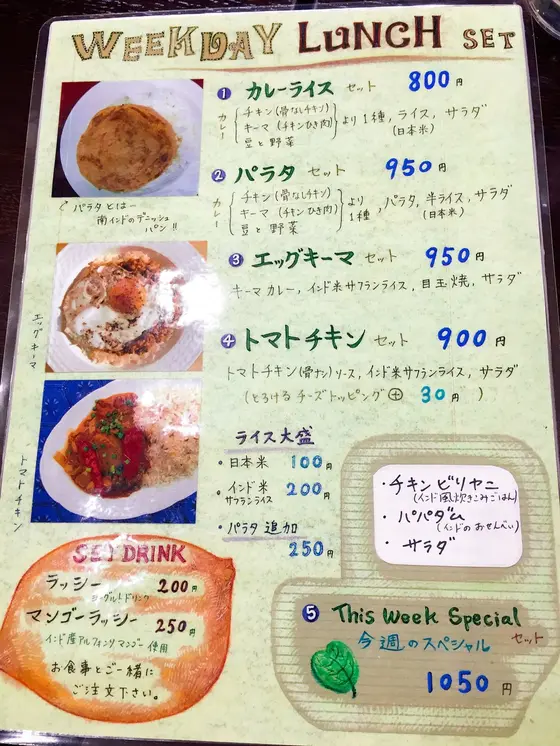 WEEKDAY LUNCH SET
① カレーライス セット 800円
カレー
チキン(骨なしチキン)
キーマ(チキンひき肉)
豆と野菜
より1種, ライス, サラダ
(日本米)
パラタとは—
南インドのデニッシュ
パン!!
② パラタ セット 950円
カレー
チキン(骨なしチキン)
キーマ(チキンひき肉)
豆と野菜
より
1種, パラタ, 半ライス, サラダ
(日本米)
エッグキーマ
③ エッグキーマ セット 950円
キーマカレー, インド米サフランライス, 目玉焼, サラダ
④ トマトチキン セット 900円
トマトチキン(骨ナシ)ソース, インド米サフランライス, サラダ
(とろける チーズトッピング ⊕ 30円)
トマトチキン
ライス大盛
・日本米 100円
・インド米
サフランライス 200円
・パラタ 追加
250円
・チキンビリヤニ
(インド風炊きこみごはん)
・パパダム
(インドのおせんべい)
・サラダ
SET DRINK
ラッシー 200円
ヨーグルトドリンク
マンゴーラッシー 250円
インド産アルフォンソマンゴー使用
お食事とご一緒に
ご注文下さい。
⑤ This Week Special
今週のスペシャル セット
1050円